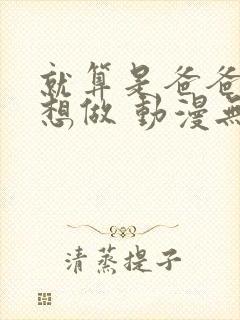 就算是爸爸
想做 動漫無
清蒸提子